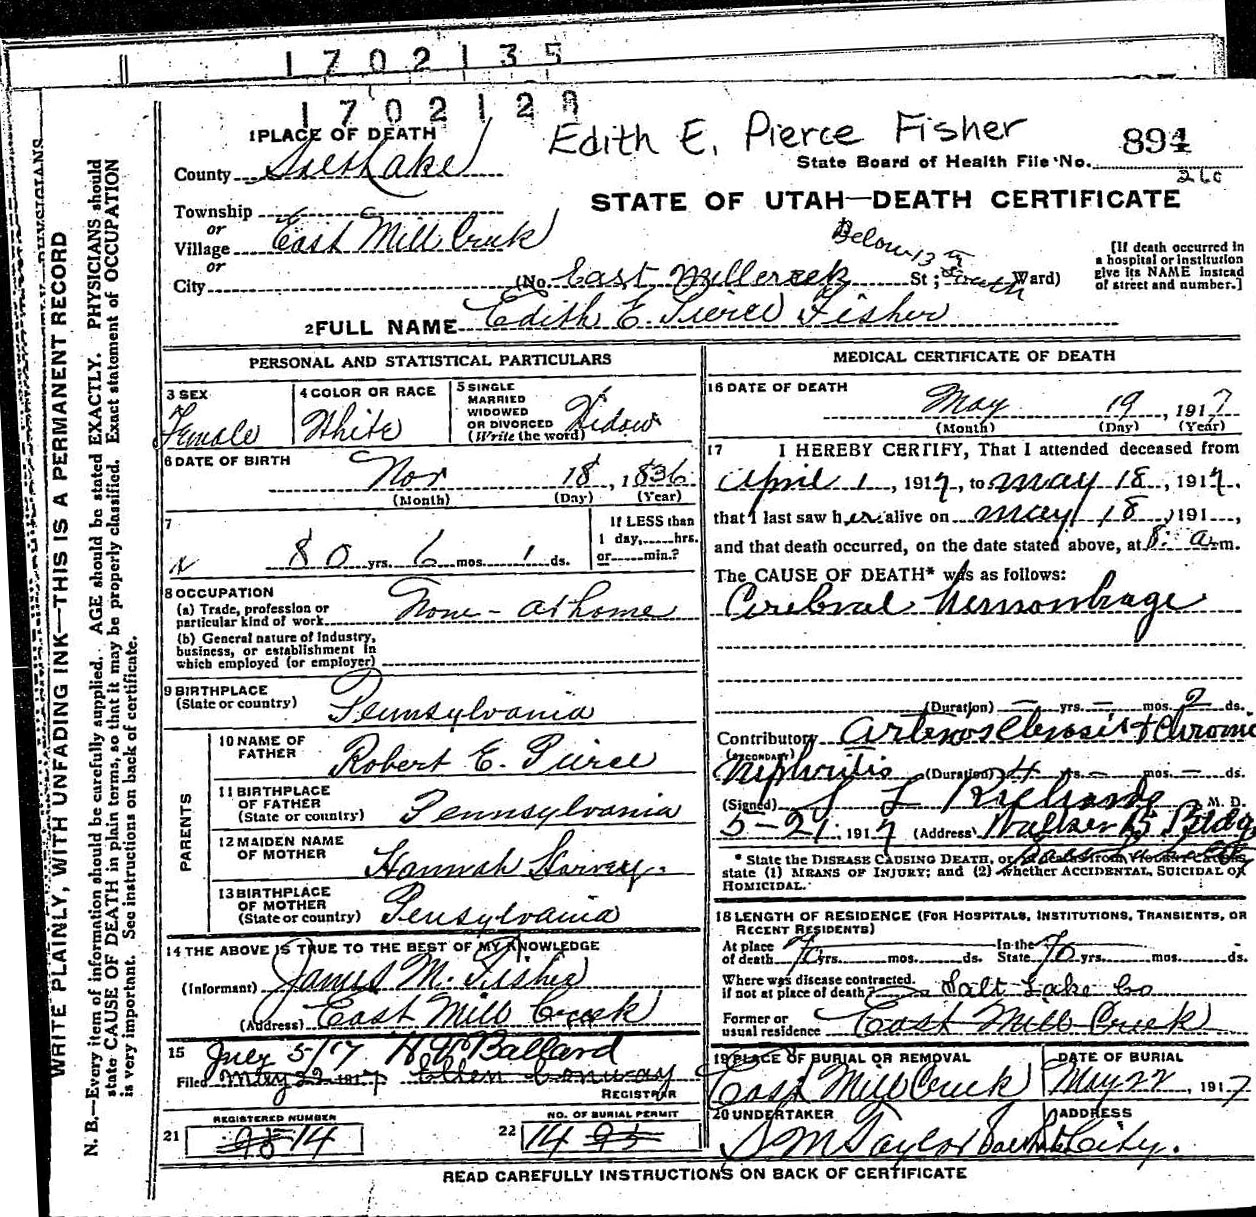 1702135
1702128
Edith E. Pierce Fisher
894
State Board of Health File No.
260
1 PLACE OF DEATH
County Salt Lake
STATE OF UTAH—DEATH CERTIFICATE
Township
or
Village East Mill Creek
or
City (No. East Millcreek St; Below 13th South Ward)
[If death occurred in
a hospital or institution
give its NAME instead
of street and number.]
2 FULL NAME Edith E. Pierce Fisher
PERSONAL AND STATISTICAL PARTICULARS
3 SEX
Female
4 COLOR OR RACE
White
5 SINGLE
MARRIED
WIDOWED
OR DIVORCED
(Write the word)
Widow
6 DATE OF BIRTH
Nov 18, 1836
(Month) (Day) (Year)
7
80 yrs. 6 mos. 1 ds.
If LESS than
1 day, hrs.
or min.?
8 OCCUPATION
(a) Trade, profession or
particular kind of work None - at home
(b) General nature of Industry,
business, or establishment in
which employed (or employer)
9 BIRTHPLACE
(State or country) Pennsylvania
PARENTS
10 NAME OF
FATHER Robert E. Pierce
11 BIRTHPLACE
OF FATHER
(State or country) Pennsylvania
12 MAIDEN NAME
OF MOTHER Hannah Harvey.
13 BIRTHPLACE
OF MOTHER
(State or country) Pensylvania
14 THE ABOVE IS TRUE TO THE BEST OF MY KNOWLEDGE
(Informant) James M. Fisher
(Address) East Mill Creek
15 July 5/17 H W Ballard
Filed May 22 1917 Ellen Conway
REGISTRAR
21 REGISTERED NUMBER
95 14
22 NO. OF BURIAL PERMIT
14 95
MEDICAL CERTIFICATE OF DEATH
16 DATE OF DEATH
May 19, 1917
(Month) (Day) (Year)
17 I HEREBY CERTIFY, That I attended deceased from
April 1, 1917, to May 18, 1917,
that I last saw her alive on May 18, 191 ,
and that death occurred, on the date stated above, at 8. a.m.
The CAUSE OF DEATH* was as follows:
Cerebral Hemorrhage
(Duration) — yrs. — mos. 2 ds.
Contributory Arteriosclerosis & Chronic
(SECONDARY)
Nephritis (Duration) 4 yrs. — mos. — ds.
(Signed) Richards M. D.
5-21 1917 (Address) Walker B Bldg
* State the DISEASE CAUSING DEATH, or, in deaths from VIOLENT CAUSES,
state (1) MEANS OF INJURY; and (2) whether ACCIDENTAL, SUICIDAL OR
HOMICIDAL.
18 LENGTH OF RESIDENCE (FOR HOSPITALS, INSTITUTIONS, TRANSIENTS, OR
RECENT RESIDENTS)
At place
of death yrs. mos. ds. In the
State 70 yrs. mos. ds.
Where was disease contracted,
if not at place of death? Salt Lake Co
Former or
usual residence East Mill Creek
19 PLACE OF BURIAL OR REMOVAL
East Mill Creek
DATE OF BURIAL
May 22, 1917
20 UNDERTAKER
S M Taylor
ADDRESS
Salt Lake City.
READ CAREFULLY INSTRUCTIONS ON BACK OF CERTIFICATE
WRITE PLAINLY, WITH UNFADING INK—THIS IS A PERMANENT RECORD
N. B.—Every item of information should be carefully supplied. AGE should be stated EXACTLY. PHYSICIANS should
state CAUSE OF DEATH in plain terms, so that it may be properly classified. Exact statement of OCCUPATION
is very important. See instructions on back of certificate.